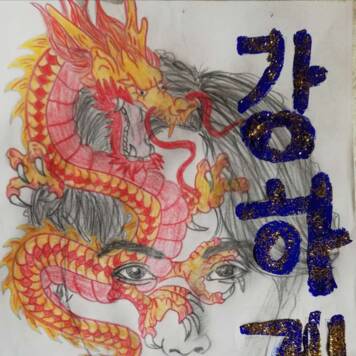 강하게